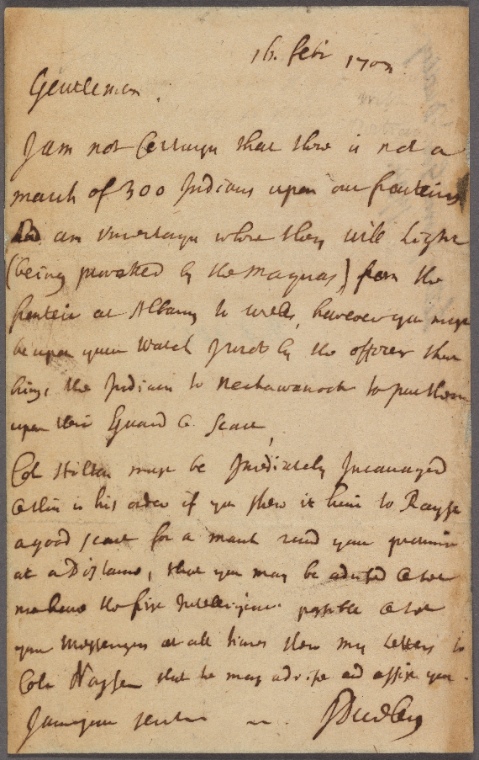 16. febr 170
Gentlemen.
I am not Certayn that there is not a
march of 300 Indians upon our fronteirs
and am uncertayn where they will light
(being provoked by the Maquas) from the
fronteir at Albany to wells, however you must
be upon your Watch I write by the officer that
brings the Indians to Nechawanock to put them
upon their Guard & scout
Col Hilton must be Imediately Incouraged
is his order if you shew it him to Rayse
a good scout for a march round your
at a Distance, that you may be advised & let
me have the first Intelligence possible & let
your Messengers at all times shew my letters to
Coll that he may advise ad assist you.
I am your servt J Dudley